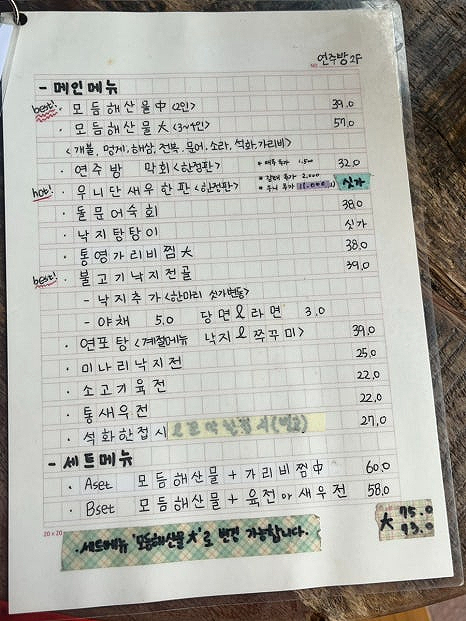 연주방 2F
- 메인메뉴
best! · 모듬해산물 中 <2인> 39.0
· 모듬해산물 大 <3~4인> 57.0
<개불, 멍게, 해삼, 전복, 문어, 소라, 석화, 가리비>
· 연주방 막회 <한정판> * 배추 추가 1.500 32.0
* 감태 추가 2.000
hot! · 우니단새우한판 <한정판> * 우니 추가 싯가
· 돌문어숙회 38.0
· 낙지탕탕이 싯가
· 통영가리비찜 大 38.0
best! · 불고기낙지전골 39.0
- 낙지추가 <한마리 싯가변동>
- 야채 5.0 당면 & 라면 3.0
· 연포탕 <계절메뉴 낙지 & 쭈꾸미> 39.0
· 미나리낙지전 25.0
· 소고기육전 22.0
· 통새우전 22.0
· 석화한접시 27.0
- 세트메뉴
· Aset 모듬해산물 + 가리비찜 中 60.0
· Bset 모듬해산물 + 육전 or 새우전 58.0
大 75.0
73.0
20×20
· 세트메뉴 '모듬해산물 大'로 변경 가능합니다.